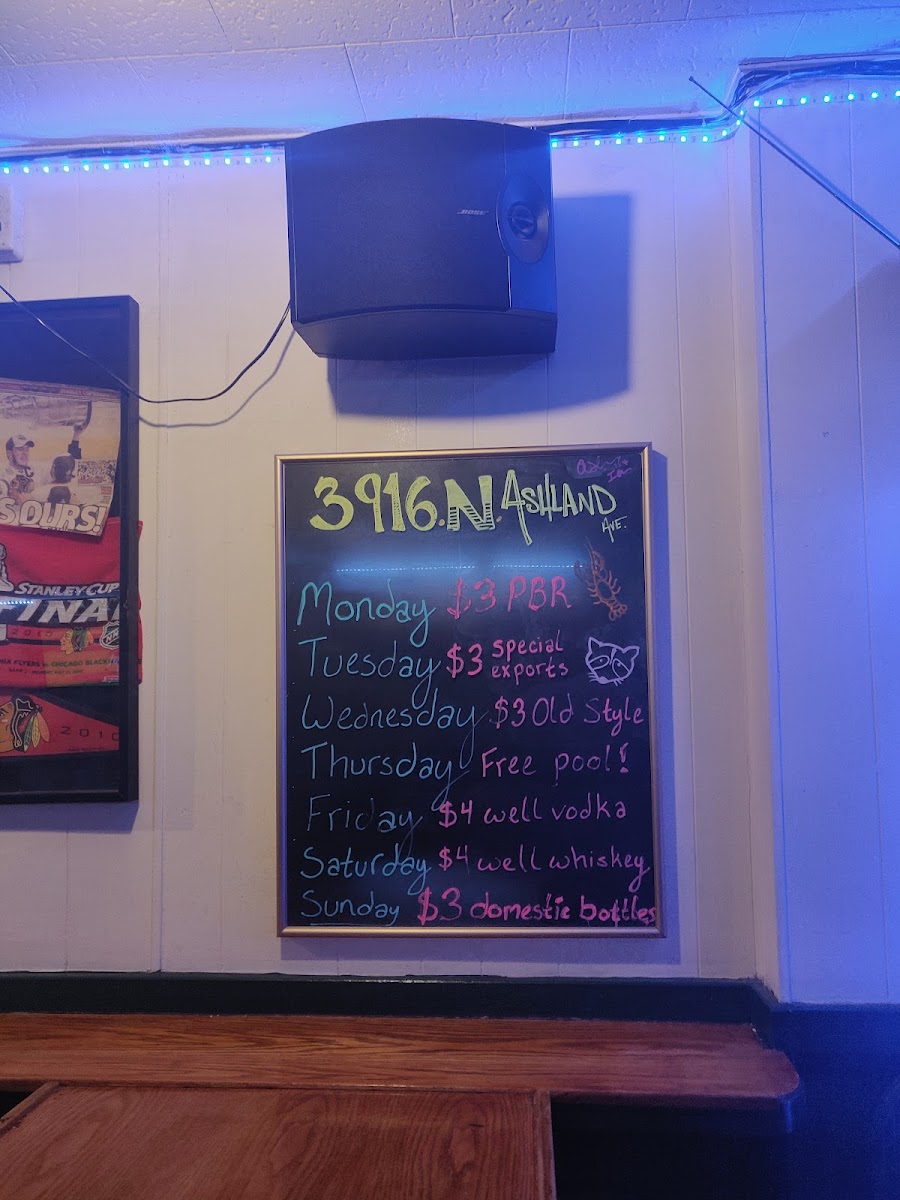 BOSE
3916.N. ASHLAND AVE.
Monday $3 PBR
Tuesday $3 special exports
Wednesday $3 Old Style
Thursday Free pool!
Friday $4 well vodka
Saturday $4 well whiskey
Sunday $3 domestic bottles
S OURS!
STANLEY CUP
FINA
2010
FLYERS vs CHICAGO BLACKH
2010